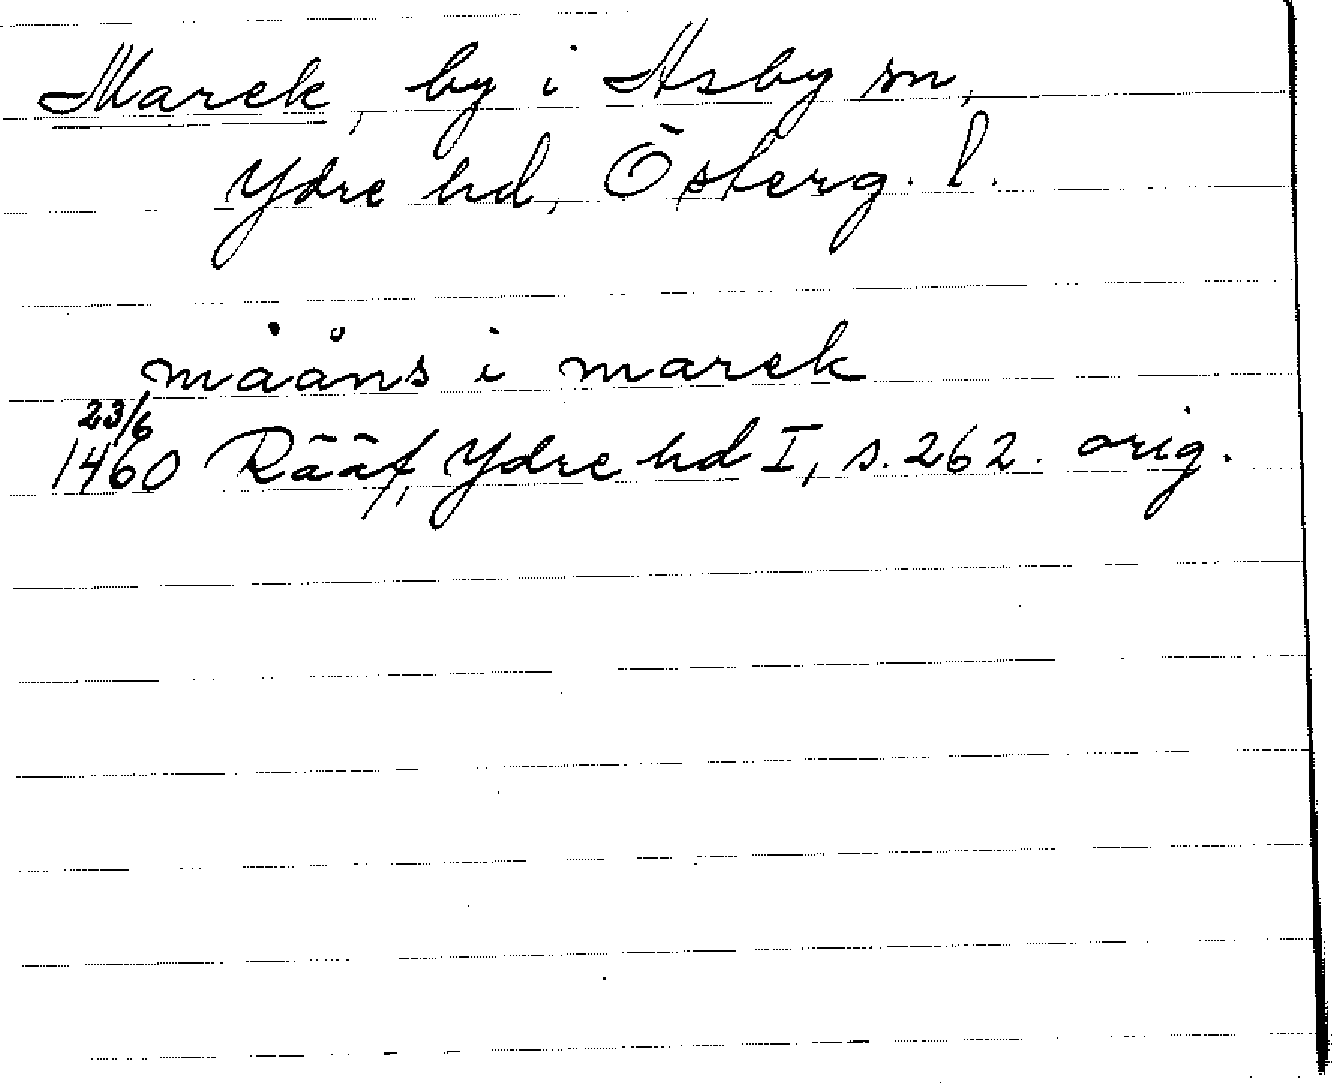 Marek, by i Asby sn,
Ydre hd, Österg. l.
måans i marek
23/6
1460 Rääf, Ydre hd I, s. 262. orig.